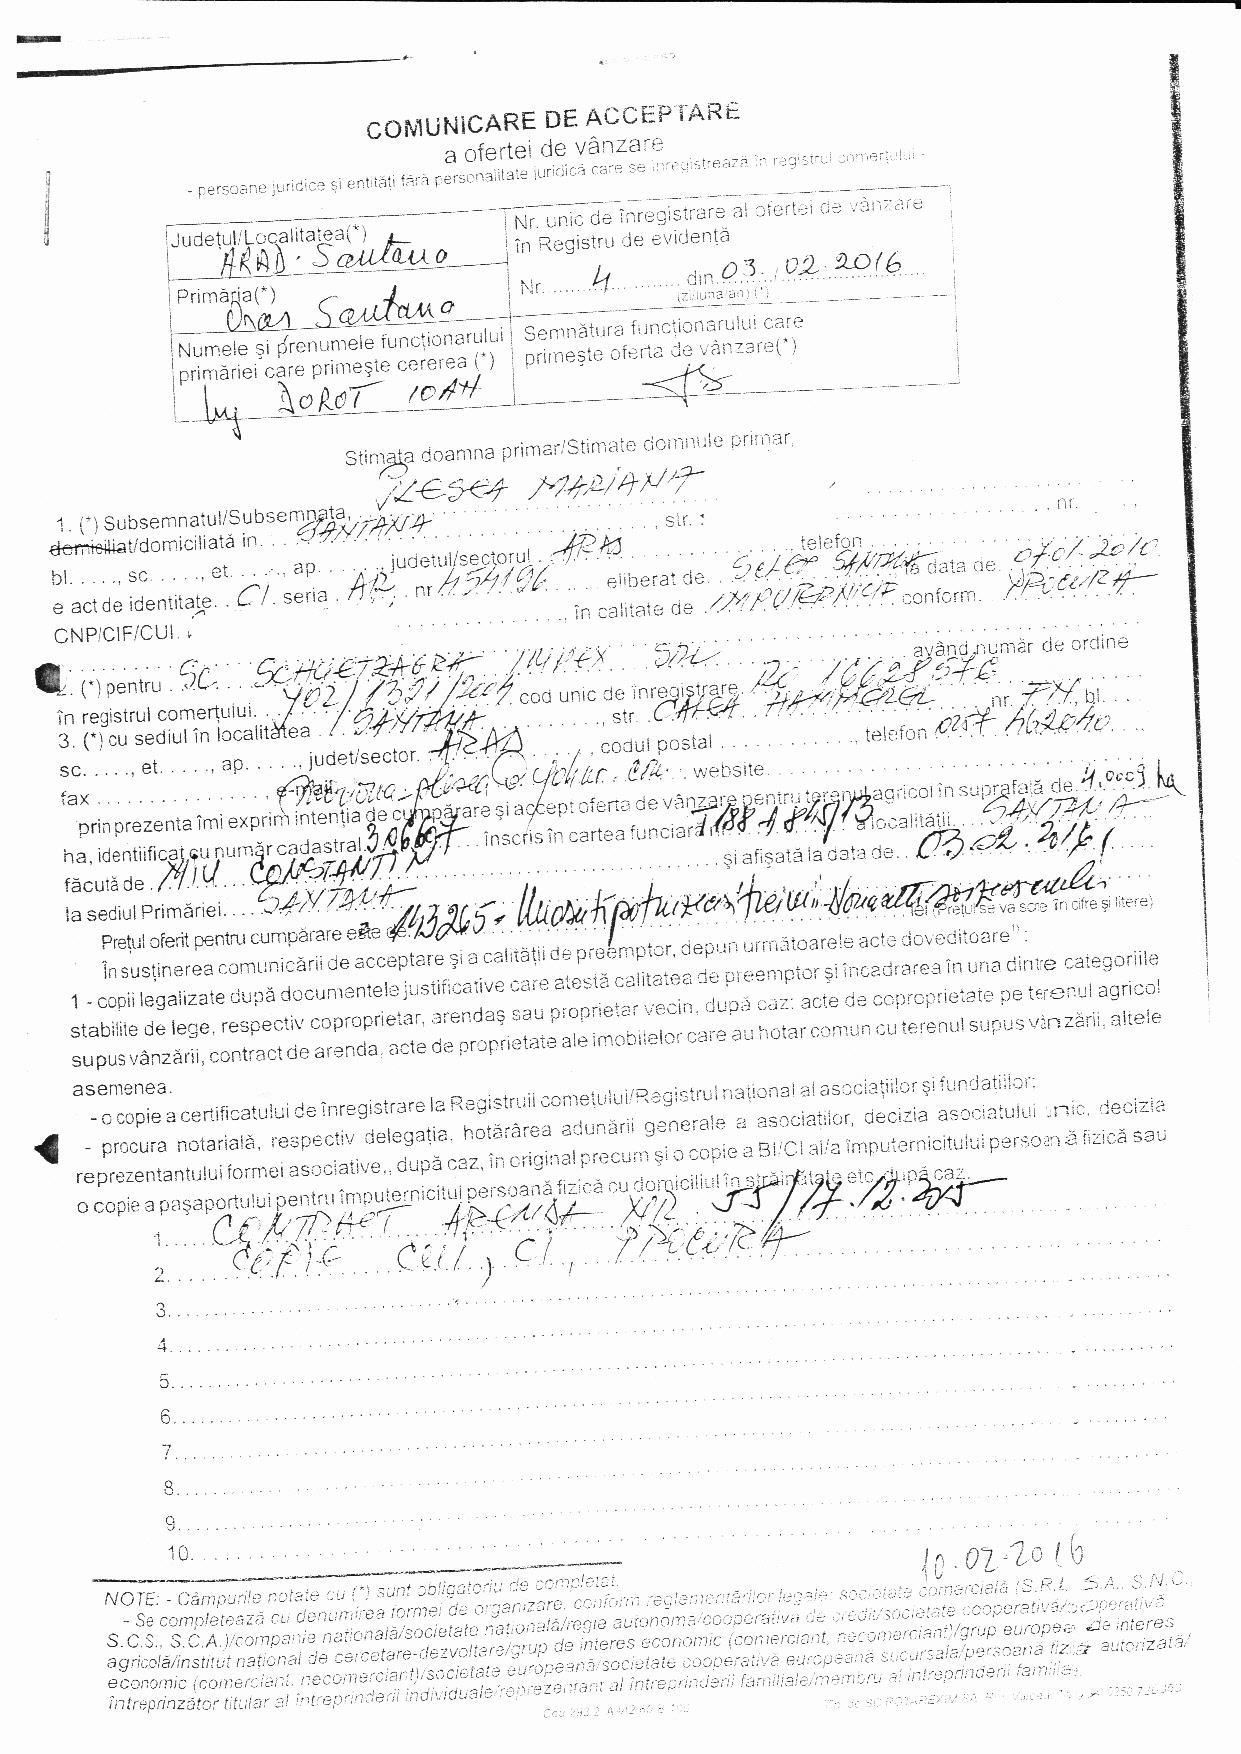 COMUNICARE DE ACCEPTARE
a ofertei de vânzare
- persoane juridice și entități fără personalitate juridică care se înregistrează în registrul comerțului -
Județul/Localitatea(*)
ARAD - Santana
Nr. unic de înregistrare al ofertei de vânzare
în Registru de evidență
Nr. ..... 4 ..... din 03. / 02. 2016
(zi/luna/an) (*)
Primăria(*)
Oraș Santana
Numele și prenumele funcționarului
primăriei care primește cererea (*)
Ing DOROT IOAN
Semnătura funcționarului care
primește oferta de vânzare(*)
Stimata doamna primar/Stimate domnule primar,
1. (*) Subsemnatul/Subsemnata, MARIANA
domiciliat/domiciliată in. . . SANTANA . . . , str. : . . . nr. . .
bl. . . . ., sc. . . . ., et. . . . ., ap. . . . . județul/sectorul . ARAD . . . telefon
e act de identitate. . CI. seria . AR. . nr 454196 eliberat de. . SCLEP SANTANA la data de. 0701.2010.
CNP/CIF/CUI. . . . , în calitate de IMPUTERNICIT. conform. PROCURA
2. (*) pentru . SC. . . IMPEX SRL având număr de ordine
în registrul comerțului. . J02/1321/2004 cod unic de înregistrare. RO 16628576
3. (*) cu sediul în localitatea . SANTANA . . . , str. CALEA nr. , bl.
sc. . . . ., et. . . . ., ap. . . . ., județ/sector. ARAD . . . , codul postal . . . , telefon 0257 462040.
fax . . . , e-mail . . website. . .
prin prezenta îmi exprim intenția de cumpărare și accept oferta de vânzare pentru terenul agricol în suprafață de. 4,0003 ha
ha, identiificat cu număr cadastral. 306697 înscris în cartea funciară a localității. . . SANTANA
făcută de . MIU CONSTANTIN . . . și afișată la data de. . 03.02.2016
la sediul Primăriei. . . . SANTANA
Prețul oferit pentru cumpărare este de 143265 - lei (Prețul se va scrie în cifre și litere)
În susținerea comunicării de acceptare și a calității de preemptor, depun următoarele acte doveditoare¹⁾:
1 - copii legalizate după documentele justificative care atestă calitatea de preemptor și încadrarea în una dintre categoriile
stabilite de lege, respectiv coproprietar, arendaș sau proprietar vecin, după caz: acte de coproprietate pe terenul agricol
supus vânzării, contract de arenda, acte de proprietate ale imobilelor care au hotar comun cu terenul supus vânzării, altele
asemenea.
- o copie a certificatului de înregistrare la Registruil comețului/Registrul național al asociațiilor și fundațiilor;
- procura notarială, respectiv delegația, hotărârea adunării generale a asociaților, decizia asociatului unic, decizia
reprezentantului formei asociative,, după caz, în original precum și o copie a BI/CI al/a împuternicitului persoană fizică sau
o copie a pașaportului pentru împuternicitul persoană fizică cu domiciliul în străinătate etc, după caz.
1. . . . CONTRACT ARENDA NR. 55/17.12.2015
2. . . . COPIE CUI, CI, PROCURA
3.
4.
5.
6.
7.
8.
9.
10.
10.02.2016
NOTE: - Câmpurile notate cu (*) sunt obligatoriu de completat.
- Se completează cu denumirea formei de organizare, conform reglementărilor legale: societate comercială (S.R.L. S.A., S.N.C.,
S.C.S., S.C.A.)/companie națională/societate națională/regie autonomă/cooperativa de credit/societate cooperativă/cooperativă
agricolă/institut național de cercetare-dezvoltare/grup de interes economic (comerciant, necomerciant)/grup european de interes
economic (comerciant, necomerciant)/societate europeană/societate cooperativă europeană sucursala/persoană fizică autorizată/
întreprinzător titular al întreprinderii individuale/reprezentant al întreprinderii familiale/membru al întreprinderii familiale.